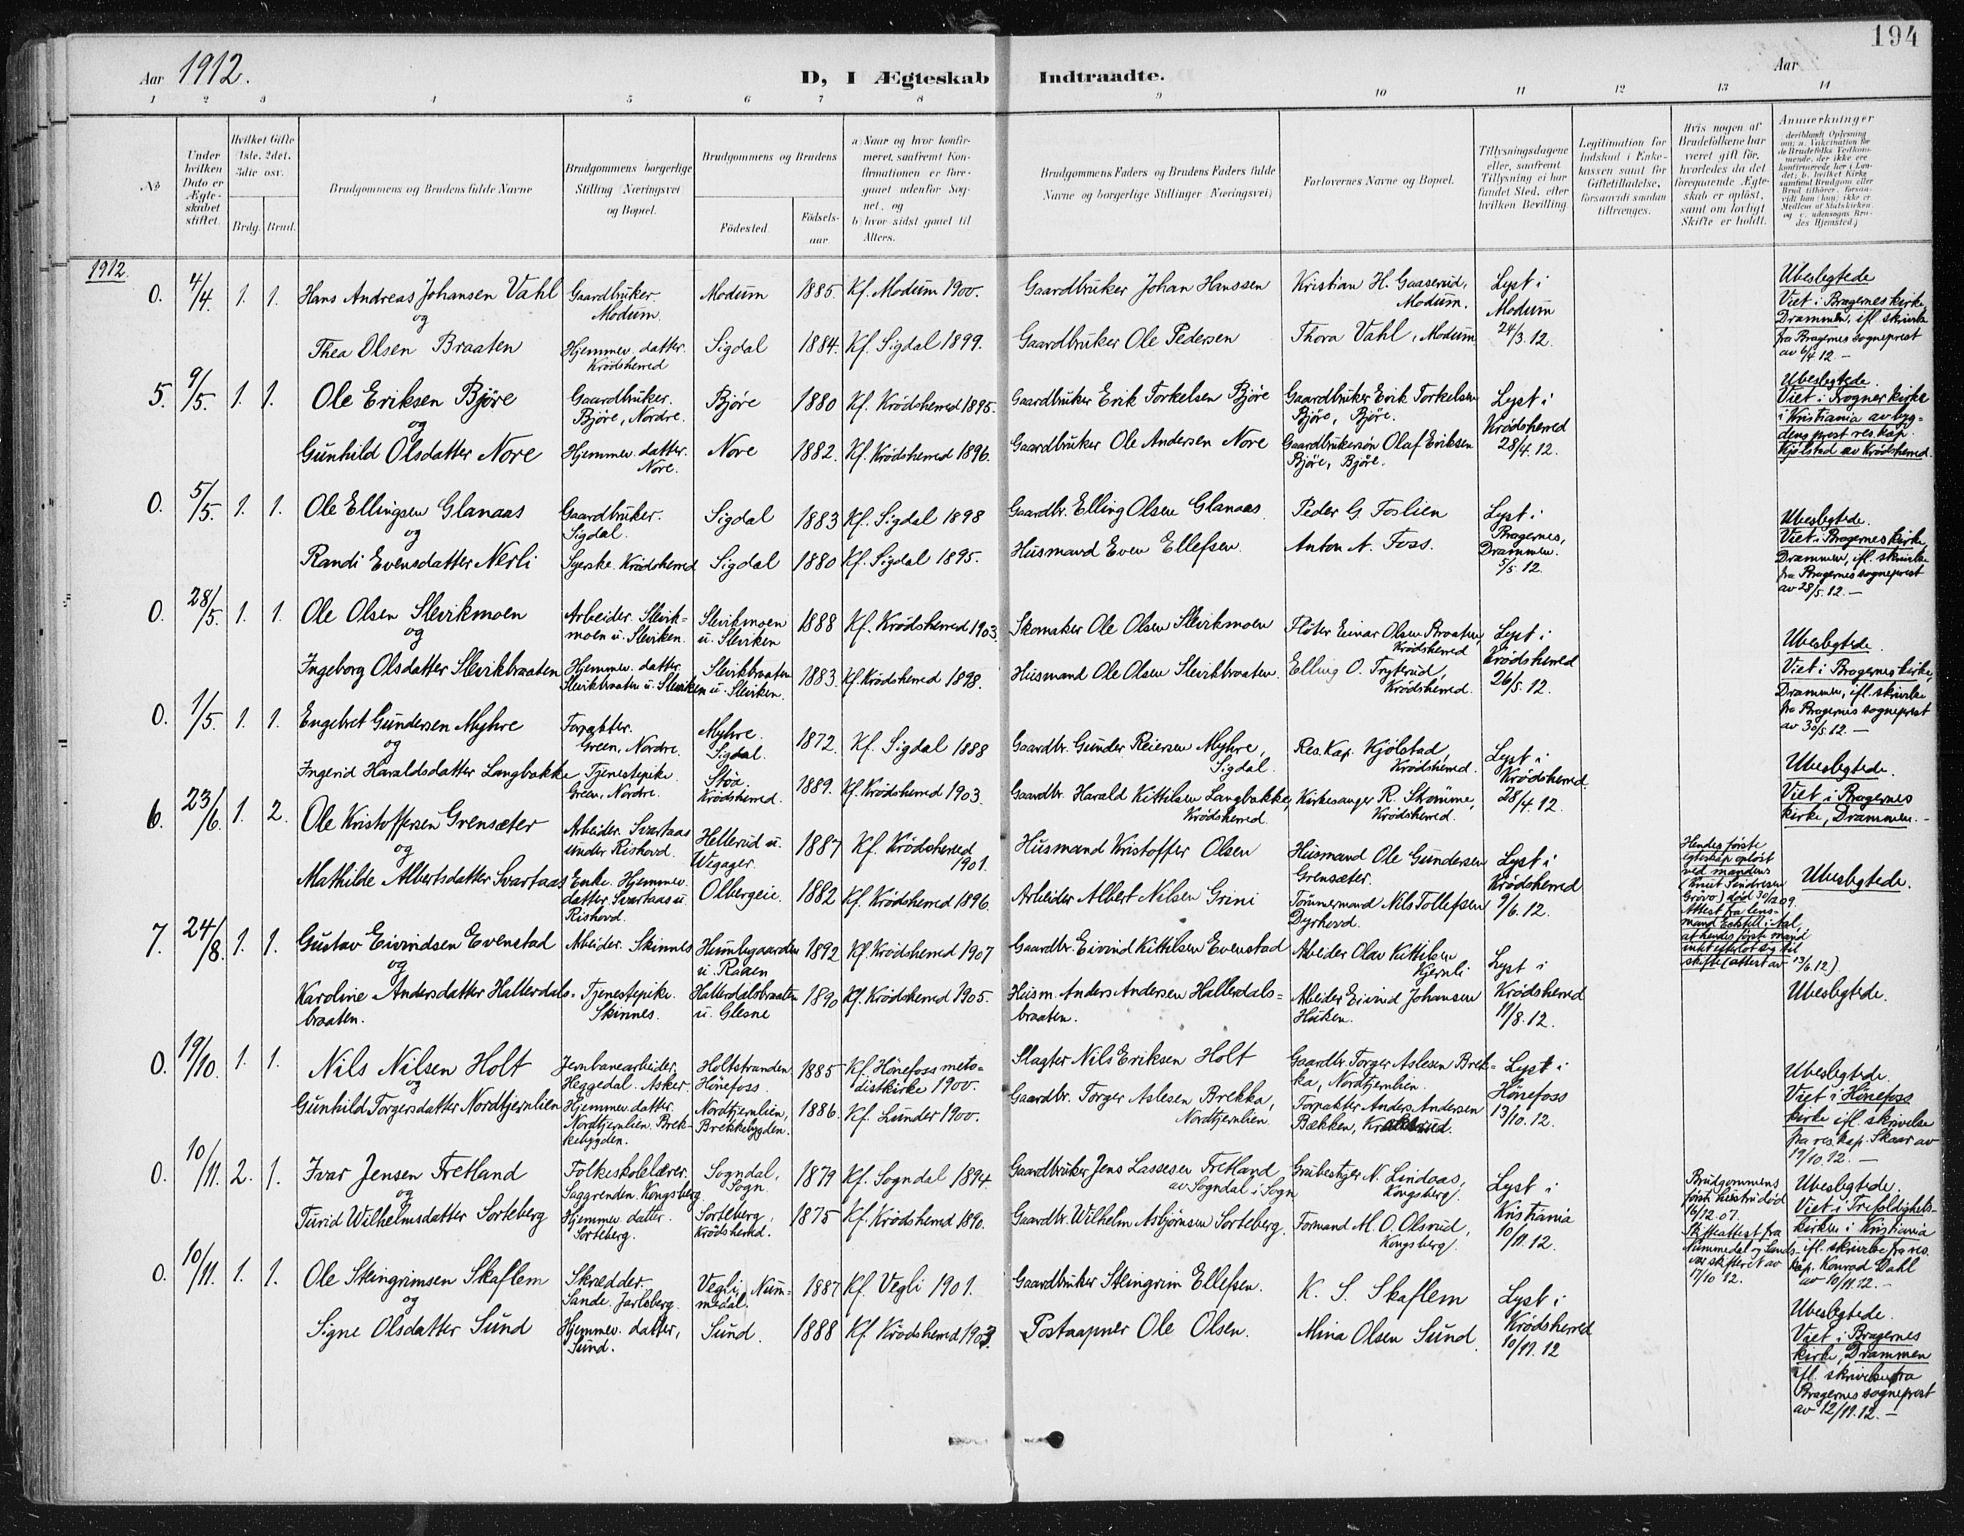 194
Aar 1912.
D, I Ægteskab Indtraadte.
Aar
1 2 3 4 5 6 7 8 9 10 11 12 13 14
No
Under hvilken Dato er Ægteskabet stiftet.
Hvilket Gifte 1ste. 2det. 3die osv.
Brdg. Brud.
Brudgommens og Brudens fulde Navne
Brudgommens borgerlige Stilling (Næringsvei) og Bopæl.
Brudgommens og Brudens
Födested. Födselsaar
a) Naar og hvor konfirmeret, saafremt Konfirmationen er foregaaet udenfor Sognet, og
b) hvor sidst gaaet til Alters.
Brudgommens Faders og Brudens Faders fulde Navne og borgerlige Stillinger (Næringsvei)
Forlovernes Navne og Bopæl.
Tillysningsdagene eller, saafremt Tillysning ei har fundet Sted, efter hvilken Bevilling
Legitimation for Indskud i Enkekassen samt for Giftetilladelse, forsaavidt saadan tiltrænges.
Hvis nogen af Brudefolkene har været gift før, hvorledes da det foregaaende Ægteskab er opløst, samt om lovligt Skifte er holdt.
Anmerkninger
1912.
0. 4/4 1. 1. Hans Andreas Johansen Vahl Gaardbruker. Modum. Modum 1885. Kf. Modum 1900. Gaardbruker Johan Hanssen Kristian H. Gaaserud, Modum. Lyst i Modum 24/3.12.
og
Thea Olsen Braaten Hjemmev. datter. Krödsherred Sigdal 1884. Kf. Sigdal 1899. Gaardbruker Ole Pedersen Thora Vahl, Modum.
Ubeslegtede
Viet i Bragernes kirke,
Drammen, ifl. skrivelse
fra Bragernes sogneprest
av 6/4 12. —
5. 9/5. 1. 1. Ole Eriksen Björe Gaardbruker. Björe, Nordre. Björe 1880 Kf. Krödsherred 1895. Gaardbruker Erik Torkelsen Björe Gaardbruker Erik Torkelsen Björe, Björe. Lyst i Krödsherred 28/4.12.
og
Gunhild Olsdatter Nore Hjemmev. datter. Nore. Nore 1882. Kf. Krödsherred 1896. Gaardbruker Ole Andersen Nore Gaardbrukersön Olaf Eriksen Björe, Björe.
Ubeslegtede.
Viet i Frogner kirke
i Kristiania av byg-
dens prest res. kap.
Kjölstad av Krödsherred.
0. 5/5. 1. 1. Ole Ellingsen Glanaas Gaardbruker. Sigdal. Sigdal 1883 Kf. Sigdal 1898 Gaardbr. Elling Olsen Glanaas Peder G. Foslien Lyst i Bragernes, Drammen. 5/5.12.
og
Randi Evensdatter Nerli Syerske. Krödsherred Sigdal 1880 Kf. Sigdal 1895. Husmand Even Ellefsen. Anton A. Foss.
Ubeslegtede.
Viet i Bragernes kirke,
Drammen, ifl. skrivelse
fra Bragernes sogneprest
av 28/5.12. —
0. 28/5. 1. 1. Ole Olsen Slevikmoen Arbeider. Slevikmoen u. Sleviken. Slevikmoen u. Sleviken 1888 Kf. Krödsherred 1903. Skomaker Ole Olsen Slevikmoen Flöter Einar Olsen Braaten, Krödsherred Lyst i Krödsherred 26/5.12.
og
Ingeborg Olsdatter Slevikbraaten Hjemmev. datter. Slevikbraaten u. Sleviken Slevikbraaten u. Sleviken. 1883. Kf. Krödsherred 1898. Husmand Ole Olsen Slevikbraaten Elling O. Fryterud, Krödsherred.
Ubeslegtede.
Viet i Bragernes kirke,
Drammen, ifl. skrivelse
fra Bragernes sogneprest
av 30/5.12. —
0. 1/5. 1. 1. Engebret Gundersen Myhre Forpakter. Green, Nordre. Myhre. Sigdal. 1872. Kf. Sigdal 1888 Gaardbr. Gunder Reiersen Myhre, Sigdal. Res. Kap. Kjölstad, Krödsherred. Lyst i Krödsherred 28/4.12.
og
Ingerid Haraldsdatter Langbakke Tjenestepike. Green, Nordre. Stöa Krödsherred. 1889. Kf. Krödsherred 1903. Gaardbr. Harald Kittilsen Langbakke, Krödsherred. Kirkesanger R. Strömme, Krödsherred.
Ubeslegtede.
Viet i Bragernes
kirke, Drammen. —
6. 23/6. 1. 2. Ole Kristoffersen Grensæter Arbeider. Svartaas under Rishovd. Hellerud u. Wegager. 1887 Kf. Krödsherred 1901. Husmand Kristoffer Olsen Husmand Ole Gundersen Grensæter. Lyst i Krödsherred 9/6.12.
og
Mathilde Albertsdatter Svartaas Enke. Hjemmev. datter. Svartaas u. Rishovd. Olbergeie. 1882 Kf. Krödsherred 1896. Arbeider Albert Nilsen Grini Tömmermand Nils Tollefsen Dyrhovd.
Hendes förste
egteskap oplöst
ved mandens
Attest fra lens-
skifte (attest av 13/6.12)
Ubeslegtede.
7. 24/8. 1. 1. Gustav Eivindsen Evenstad Arbeider. Skinnes Humlegaarden u. Raaen 1892 Kf. Krödsherred 1907 Gaardbr. Eivind Kittilsen Evenstad Arbeider Olav Kittilsen Kjernli Lyst i Krödsherred 11/8.12.
og
Karoline Andersdatter Hallerdals-braaten. Tjenestepike. Skinnes. Hallerdalsbraaten u. Glesne 1890 Kf. Krödsherred 1905. Husm. Anders Andersen Hallerdals-braaten. Arbeider Eivind Johansen Haken.
Ubeslegtede.
0. 19/10. 1. 1. Nils Nilsen Holt Jernbanearbeider, Heggedal. Asker. Holtstranden Hönefoss. 1885 Kf. Hönefoss metodistkirke 1900. Slagter Nils Eriksen Holt Gaardbr. Torger Aslesen Brekka, Nordtjernlien. Lyst i Hönefoss 13/10.12.
og
Gunhild Torgersdatter Nordtjernlien Hjemmev. datter. Nordtjernlien. Brekkebygden. Nordtjernlien, Brekkebygden. 1886. Kf. Lunder 1900. Gaardbr. Torger Aslesen Brekka, Nordtjernlien. Forpakter Anders Andersen Bækken,
Ubeslegtede.
Viet i Hönefoss
kirke ifl. skrivelse
fra res. kap. Skaar av
19/10.12. —
0. 10/11. 2. 1. Ivar Jensen Fretland Folkeskolelærer. Saggrenden. Kongsberg Sogndal, Sogn. 1879 Kf. Sogndal 1894. Gaardbruker Jens Lassesen Fretland av Sogndal i Sogn Grubestiger N. Lindaas, Kongsberg. Lyst i Kristiania 10/11.12.
og
Turid Wilhelmsdatter Sorteberg Hjemmev. datter. Sorteberg. Sorteberg, Krödsherred. 1875 Kf. Krödsherred 1890. Gaardbr. Wilhelm Asbjörnsen Sorteberg. Formand M. O. Olsrud, Kongsberg.
Brudgommens
förste hustru död
16/12.07.
Skifteattest fra
Nummedal og Sands-
værs skifterett av
17/10 12.
Ubeslegtede.
Viet i Trefoldighets-
kirken i Kristiania
ifl. skrivelse fra res.
kap. Konrad Dahl
av 10/11.12. —
0. 10/11. 1. 1. Ole Steingrimsen Skaflem Skrædder. Sande. Jarlsberg. Vegli, Nummedal. 1887 Kf. Vegli 1901. Gaardbruker Steingrim Ellefsen. K. S. Skaflem Lyst i Krödsherred 10/11.12
og
Signe Olsdatter Sund Hjemmev. datter, Sund. Sund. 1888 Kf. Krödsherred 1903. Postaapner Ole Olsen. Mina Olsen Sund.
Ubeslegtede.
Viet i Bragernes
kirke, Drammen
ifl. skrivelse fra
Bragernes sogneprest
av 12/11.12. —